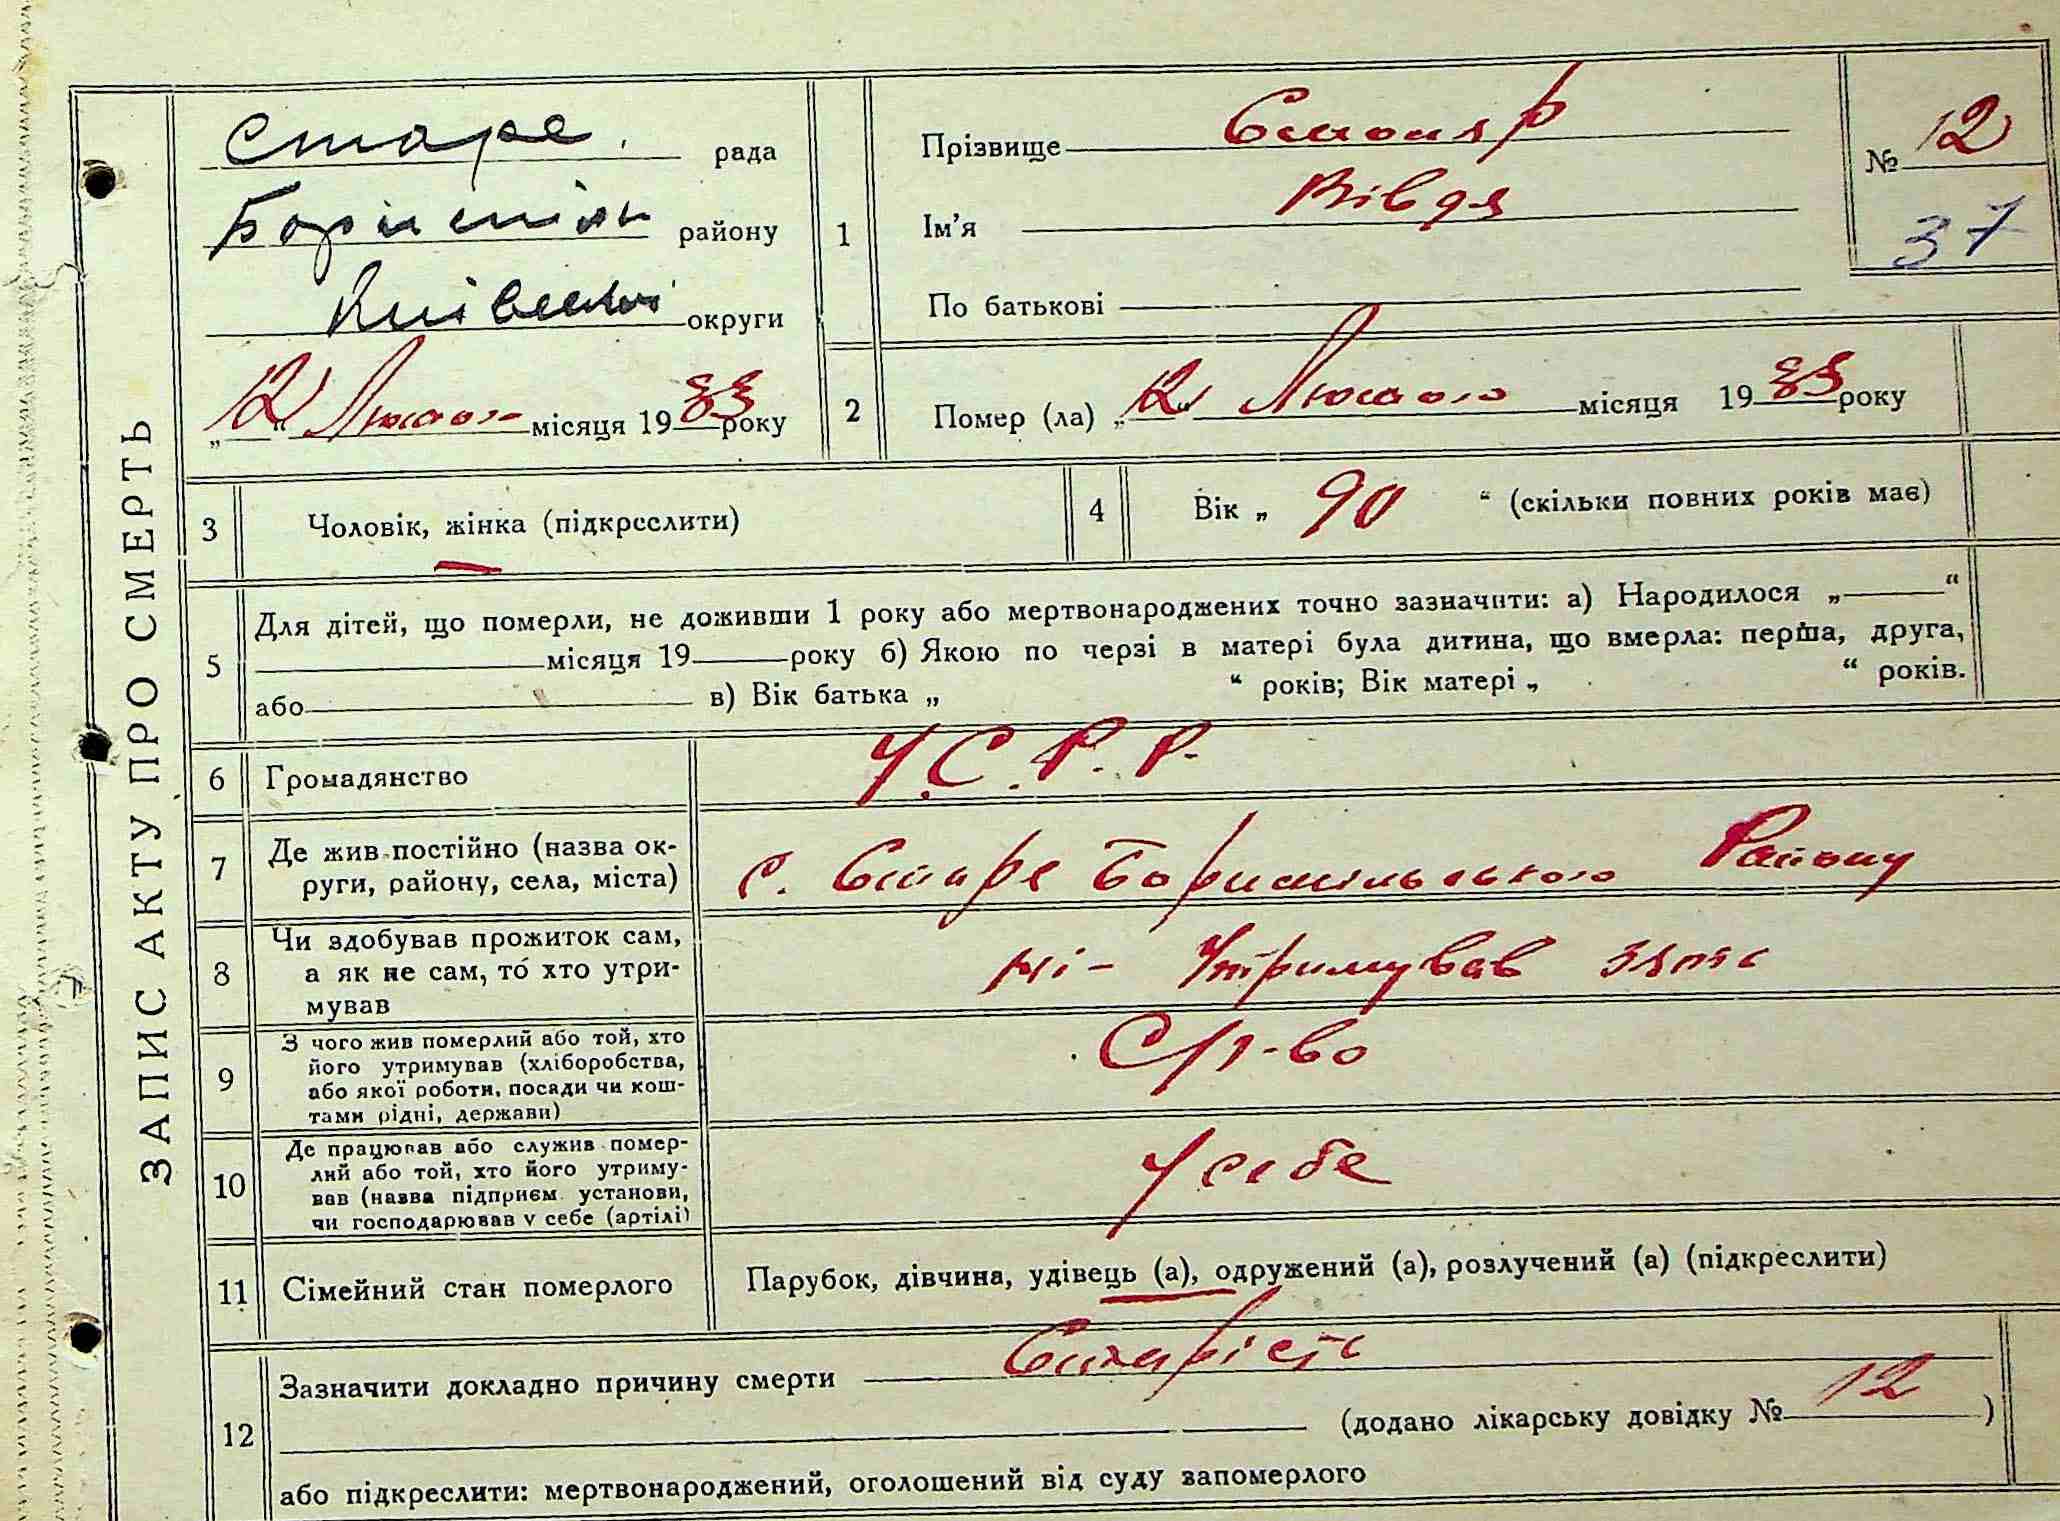 ЗАПИС АКТУ ПРО СМЕРТЬ
Старе рада
Бориспіль району
Київської округи
„12“ Лютого місяця 1933 року
1 Прізвище Столяр
Ім'я Вівдя
По батькові
№ 12
37
2 Помер (ла) „12“ Лютого місяця 1933 року
3 Чоловік, жінка (підкреслити)
4 Вік „ 90 “ (скільки повних років має)
5 Для дітей, що померли, не доживши 1 року або мертвонароджених точно зазначити: а) Народилося „ “
місяця 19 року б) Якою по черзі в матері була дитина, що вмерла: перша, друга,
або в) Вік батька „ “ років; Вік матері „ “ років.
6 Громадянство У.С.Р.Р.
7 Де жив постійно (назва ок-
руги, району, села, міста)
с. Старе Бориспільського Району
8 Чи здобував прожиток сам,
а як не сам, то хто утри-
мував
ні - Утримував зять
9 З чого жив померлий або той, хто
його утримував (хліборобства,
або якої роботи, посади чи кош-
тами рідні, держави)
С/г-во
10 Де працював або служив помер-
лий або той, хто його утриму-
вав (назва підприєм. установи,
чи господарював у себе (артілі)
У себе
11 Сімейний стан померлого Парубок, дівчина, удівець (а), одружений (а), розлучений (а) (підкреслити)
12 Зазначити докладно причину смерти Старість
(додано лікарську довідку № 12 )
або підкреслити: мертвонароджений, оголошений від суду запомерлого